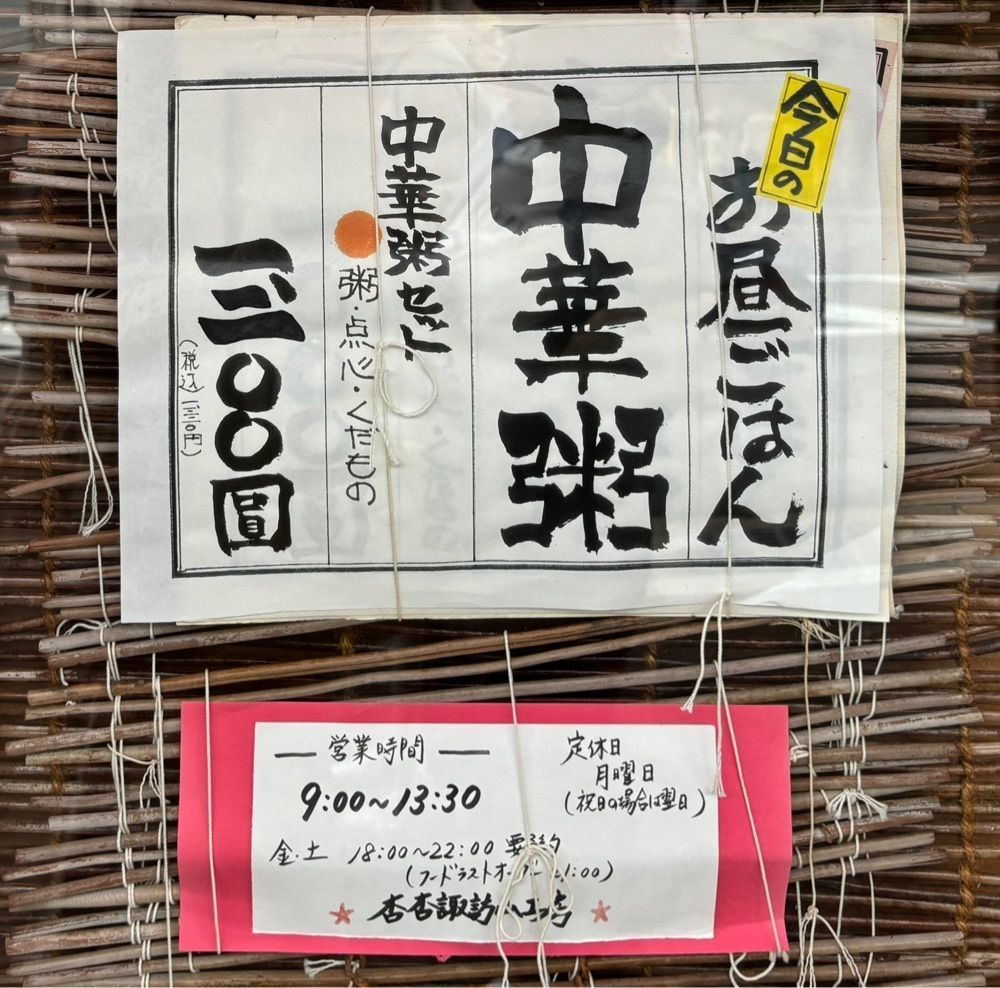 今日の
お昼ごはん
中華粥
中華粥セット
粥・点心・くだもの
一、二〇〇圓
(税込)一、三二〇円
営業時間
9:00〜13:30
定休日
月曜日
(祝日の場合は翌日)
金・土 18:00〜22:00 要予約
(フードラストオーダー 21:00)
杏杏諏訪